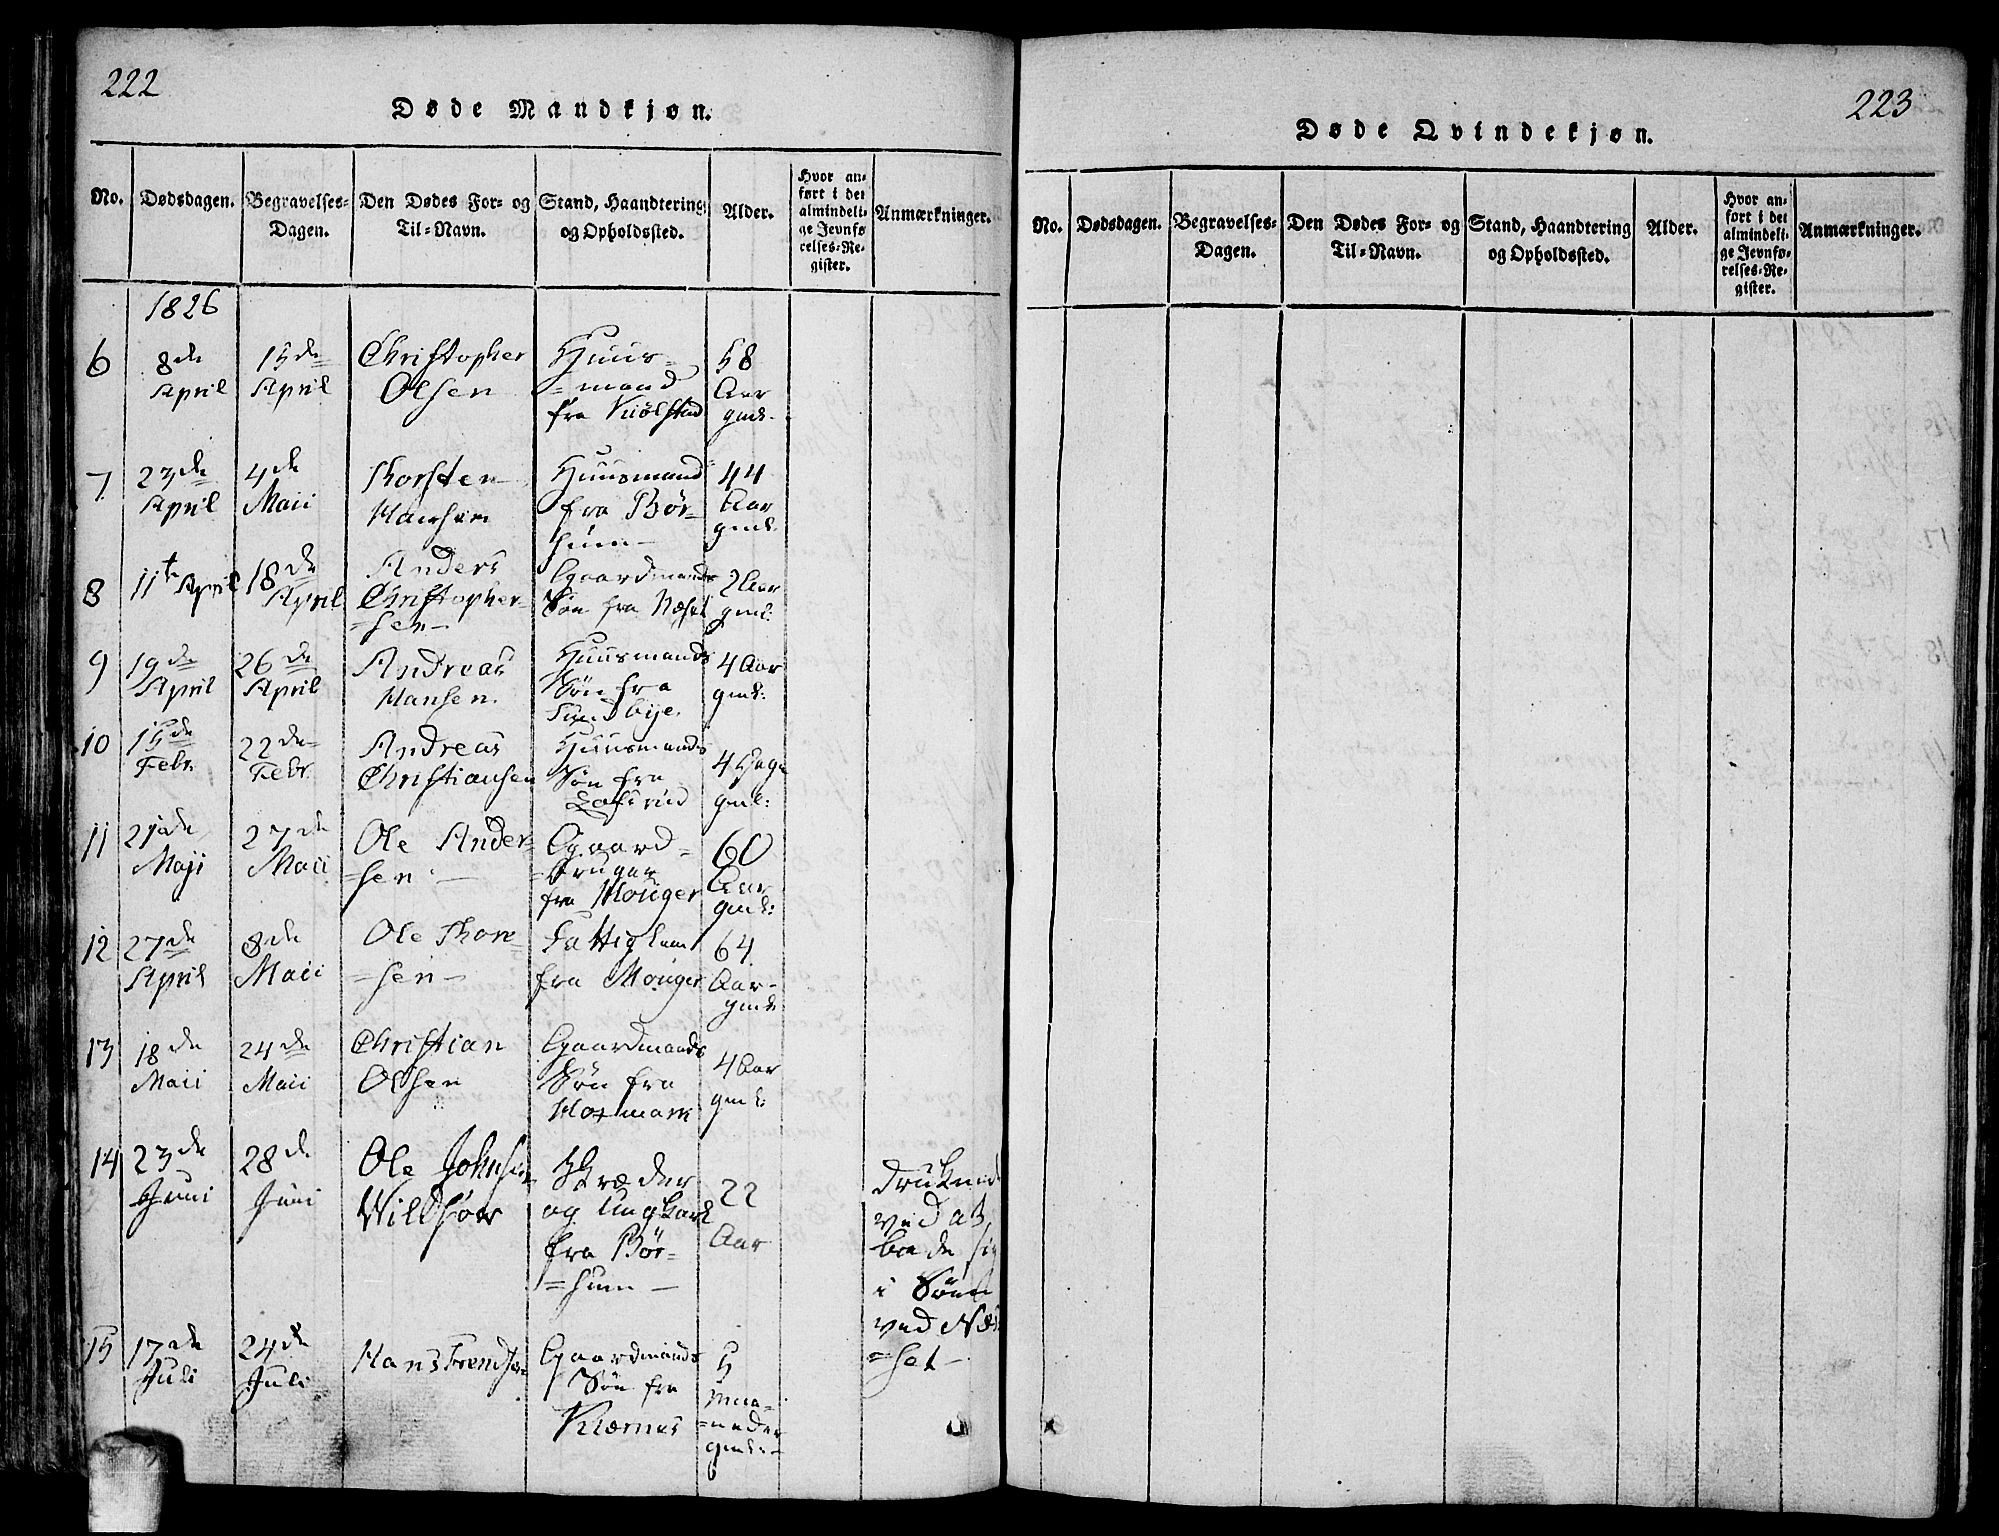 222
Døde Mandkjøn.
No.
Dødsdagen.
Begravelses-
Dagen.
Den Dødes For- og
Til-Navn.
Stand, Haandtering
og Opholdssted.
Alder.
Hvor an-
ført i det
almindeli-
ge Jevnfø
relses-Re-
gister.
Anmærkninger.
1826
6
8de
April
15de
April
Christopher
Olsen
Huus-
=mand
fra
58
Aar
gml.
7
23de
April
4de
Maii
Thorsten
Hansen
Huusmand
fra Bør-
sum-
44
Aar
gml:
8
11te April
18de
April
Anders
Christopher-
=sen-
Gaardmands
Søn fra Næset
2 Aar
gml:
9
19de
April
26de
April
Andreas
Hansen.
Huusmands
Søn fra
Sundbye.
4 Aar
gml:
10
15de
Febr.
22de
Febr.
Andreas
Christiansen
Huusmands
Søn fra
4 Uger
gml:
11
21de
Maji
27de
Maii
Ole Ander-
=sen-
Gaard=
=bruger
fra Mouger
60
Aar
gml:
12
27de
April
8de
Maii
Ole Thore-
=sen-
Fattiglem
fra Mouger
64
Aar-
gml:
13
18de
Maii
24de
Maii
Christian
Olsen
Gaardmands
Søn fra
4 Aar
gml:
14
23de
Juni
28de
Juni
Ole Johnsen
Skræder
og Ungkarl
fra Bør-
=sum-
22
Aar
druknede
ved at
bade sig
i Søen
ved Næs-
=set-
15
17de
Juli
24de
Juli
Hans
Gaardmands
Søn fra
Kiærnes
5
Maa-
=neder
gml:-
223
Døde Qvindekjøn.
No.
Dødsdagen.
Begravelses-
Dagen.
Den Dødes For- og
Til-Navn.
Stand, Haandtering
og Opholdssted.
Alder.
Hvor an-
ført i det
almindeli-
ge Jevnfø-
relses-Re-
gister.
Anmærkninger.